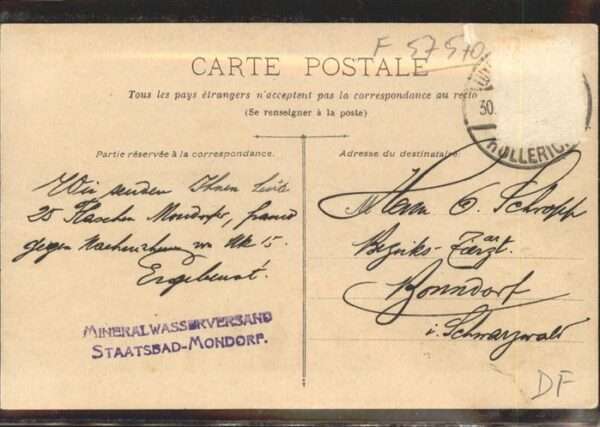 F 57570
CARTE POSTALE
Tous les pays étrangers n'acceptent pas la correspondance au recto
(Se renseigner à la poste)
30.
HOLLERICH
Partie réservée à la correspondance.
Adresse du destinataire.
Wir senden Ihnen heute
25 Flaschen Mondorfer, franco
gegen Nachnahme von Mk 15.
Ergebenst.
MINERALWASSERVERSAND
STAATSBAD-MONDORF.
Herrn O. Schropp
Bezirks-Tierarzt.
Bonndorf
i. Schwarzwald
DF